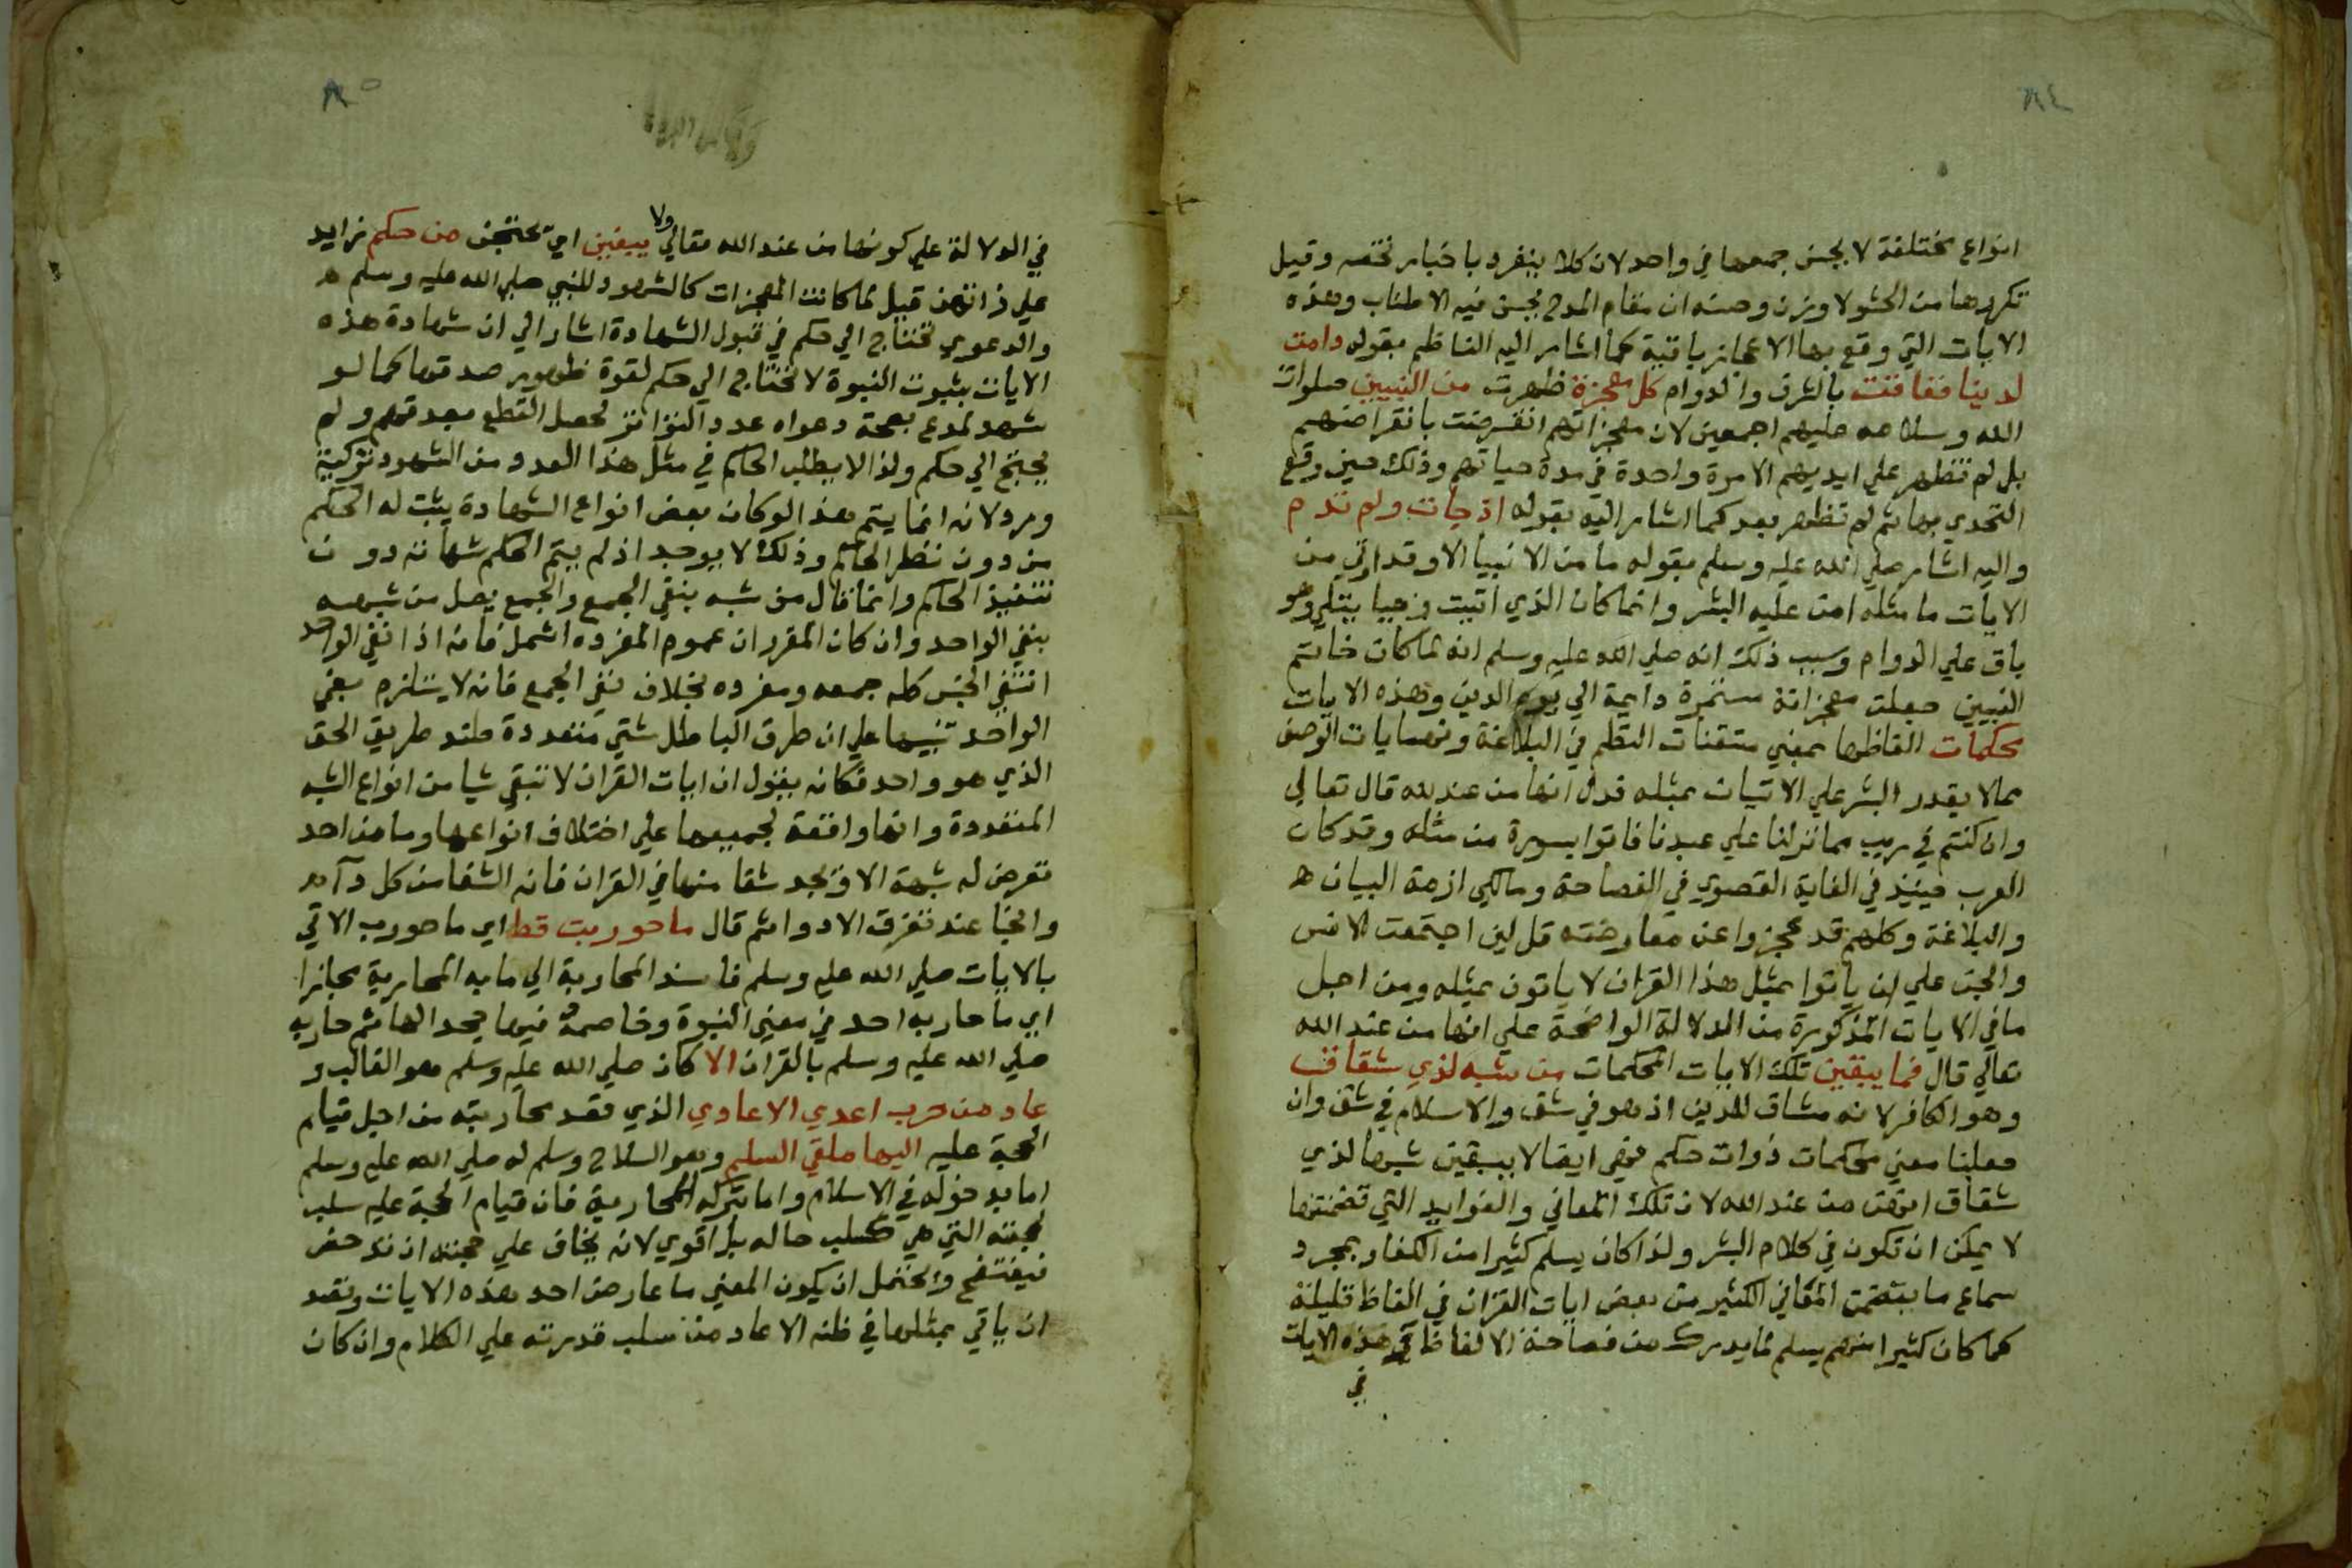 ٨٤
انواع مختلفة لا يحسن جمعها في واحد لان كلا ينفرد باخبار تخصه وقيل
تكريرها من الحشو لا وزن وصنه ان مقام المدح يحسن فيه الاطناب وهذه
الايات التي وقع بها الاعجاز باقية كما اشار اليه الناظم بقوله دامت
لدينا ففاقت بالشرف والدوام كل معجزة ظهرت من النبيين صلوات
الله وسلامه عليهم اجمعين لان معجزاتهم انقرضت بانقراضهم
بل لم تظهر علي ايديهم الا مرة واحدة في مدة حياتهم وذلك حين وقع
التحدي بها ثم لم تظهر بعد كما اشار اليه بقوله اذ جات ولم تدم
واليه اشار صلي الله عليه وسلم بقوله ما من الانبيا الا وقد اوتي من
الايات ما مثله امن عليه البشر وانما كان الذي اتيت وحيا يتلي وهو
باق علي الدوام وسبب ذلك انه صلي الله عليه وسلم انه لما كان خاتم
النبيين جعلت معجزاته مستمرة دايمة الي يوم الدين وهذه الايات
محكمات الفاظها بمعني متقنات النظم في البلاغة ونهايات الوصف
بما لا يقدر البشر علي الاتيان بمثله فدل انها من عند الله قال تعالي
وان كنتم في ريب مما نزلنا علي عبدنا فاتوا بسورة من مثله وقد كان
العرب حينيذ في الغاية القصوي في الفصاحة ومالكي ازمة البيان ه
والبلاغة وكلهم قد عجزوا عن معارضته قل لين اجتمعت الانس
والجن علي ان ياتوا بمثل هذا القران لا ياتون بمثله ومن اجل
ما في الايات المذكورة من الدلالة الواضحة علي انها من عند الله
تعالي قال فما يبقين تلك الايات المحكمات من شبه لذي شقاق
وهو الكافر لانه مشاق للدين اذ هو في شق والاسلام في شق وان
جعلنا معني محكمات ذوات حكم فهي ايضا لا يبقين شبها لذي
شقاق انهن من عند الله لان تلك المعاني والفوايد التي تضمنتها
لا يمكن ان تكون في كلام البشر ولذا كان يسلم كثيرا من الكفار بمجرد
سماع ما يتضمن المعاني الكثير من بعض ايات القران في الفاظ قليلة
كما كان كثيرا منهم يسلم لما يدرك من فصاحة الالفاظ في هذه الايات
في
٨٥
في الدلالة علي كونها من عند الله تعالي ولا يبغين اي يحتجن من حكم زايد
علي ذاتهن قيل لما كانت المعجزات كالشهود للنبي صلي الله عليه وسلم ه
والدعوي تحتاج الي حكم في قبول الشهادة اشار الي ان شهادة هذه
الايات بثبوت النبوة لا تحتاج الي حكم لقوة ظهور صدقها كما لو
شهد لمدع بصحة دعواه عدد التواتر لحصل القطع بصدقهم ولم
يحتج الي حكم ولذا لا يطلب الحاكم في مثل هذا العدد من الشهود تزكية
ورد لانه انما يتم هذا لو كان بعض انواع الشهادة يثبت له الحكم
من دون نظر الحاكم وذلك لا يوجد اذ لم يتم الحكم شهاته دون
تنفيذ الحاكم وانما قال من شبه بنفي الجمع والجمع يصل من شبهه
بنفي الواحد وان كان المقرر ان عموم المفرده اشمل فانه اذا نفي الواحد
انتفي الجنس كله جمعه ومفرده بخلاف نفي الجمع فانه لا يستلزم نفي
الواحد تنبيها علي ان طرق الباطل شتي متعددة ضد طريق الحق
الذي هو واحد فكانه يقول ان ايات القران لا تبقي شيا من انواع الشبه
المتعددة وانها وافقة لجميعها علي اختلاف انواعها وما من احد
تعرض له شبهة الا وتجد شفا منها في القران فانه الشفا من كل داء
والنجا عند تفرق الادوا ثم قال ما حوربت قط اي ما حورب الاتي
بالايات صلي الله عليه وسلم فاسند المحاربة الي ما به المحاربة مجازا
اي ما حاربه احد في معني النبوة وخاصمه فيها جحدا لها ثم حاربه
صلي الله عليه وسلم بالقران الا كان صلي الله عليه وسلم هو الغالب و
عاد من حرب اعدي الاعادي الذي قصد محاربته من اجل قيام
الحجة عليه اليها ملقي السلم وهو السلاح وسلم له صلي الله عليه وسلم
اما بدخوله في الاسلام واما بتركه المحاربة فان قيام الحجة عليه سلب
لحجته التي هي كسلب ماله بل اقوي لانه يخاف علي حجته ان تدحض
فيفتضح ويحتمل ان يكون المعني ما عارض احد هذه الايات وقصد
ان ياتي بمثلها في ظنه الا عاد من سلب قدرته علي الكلام وان كان